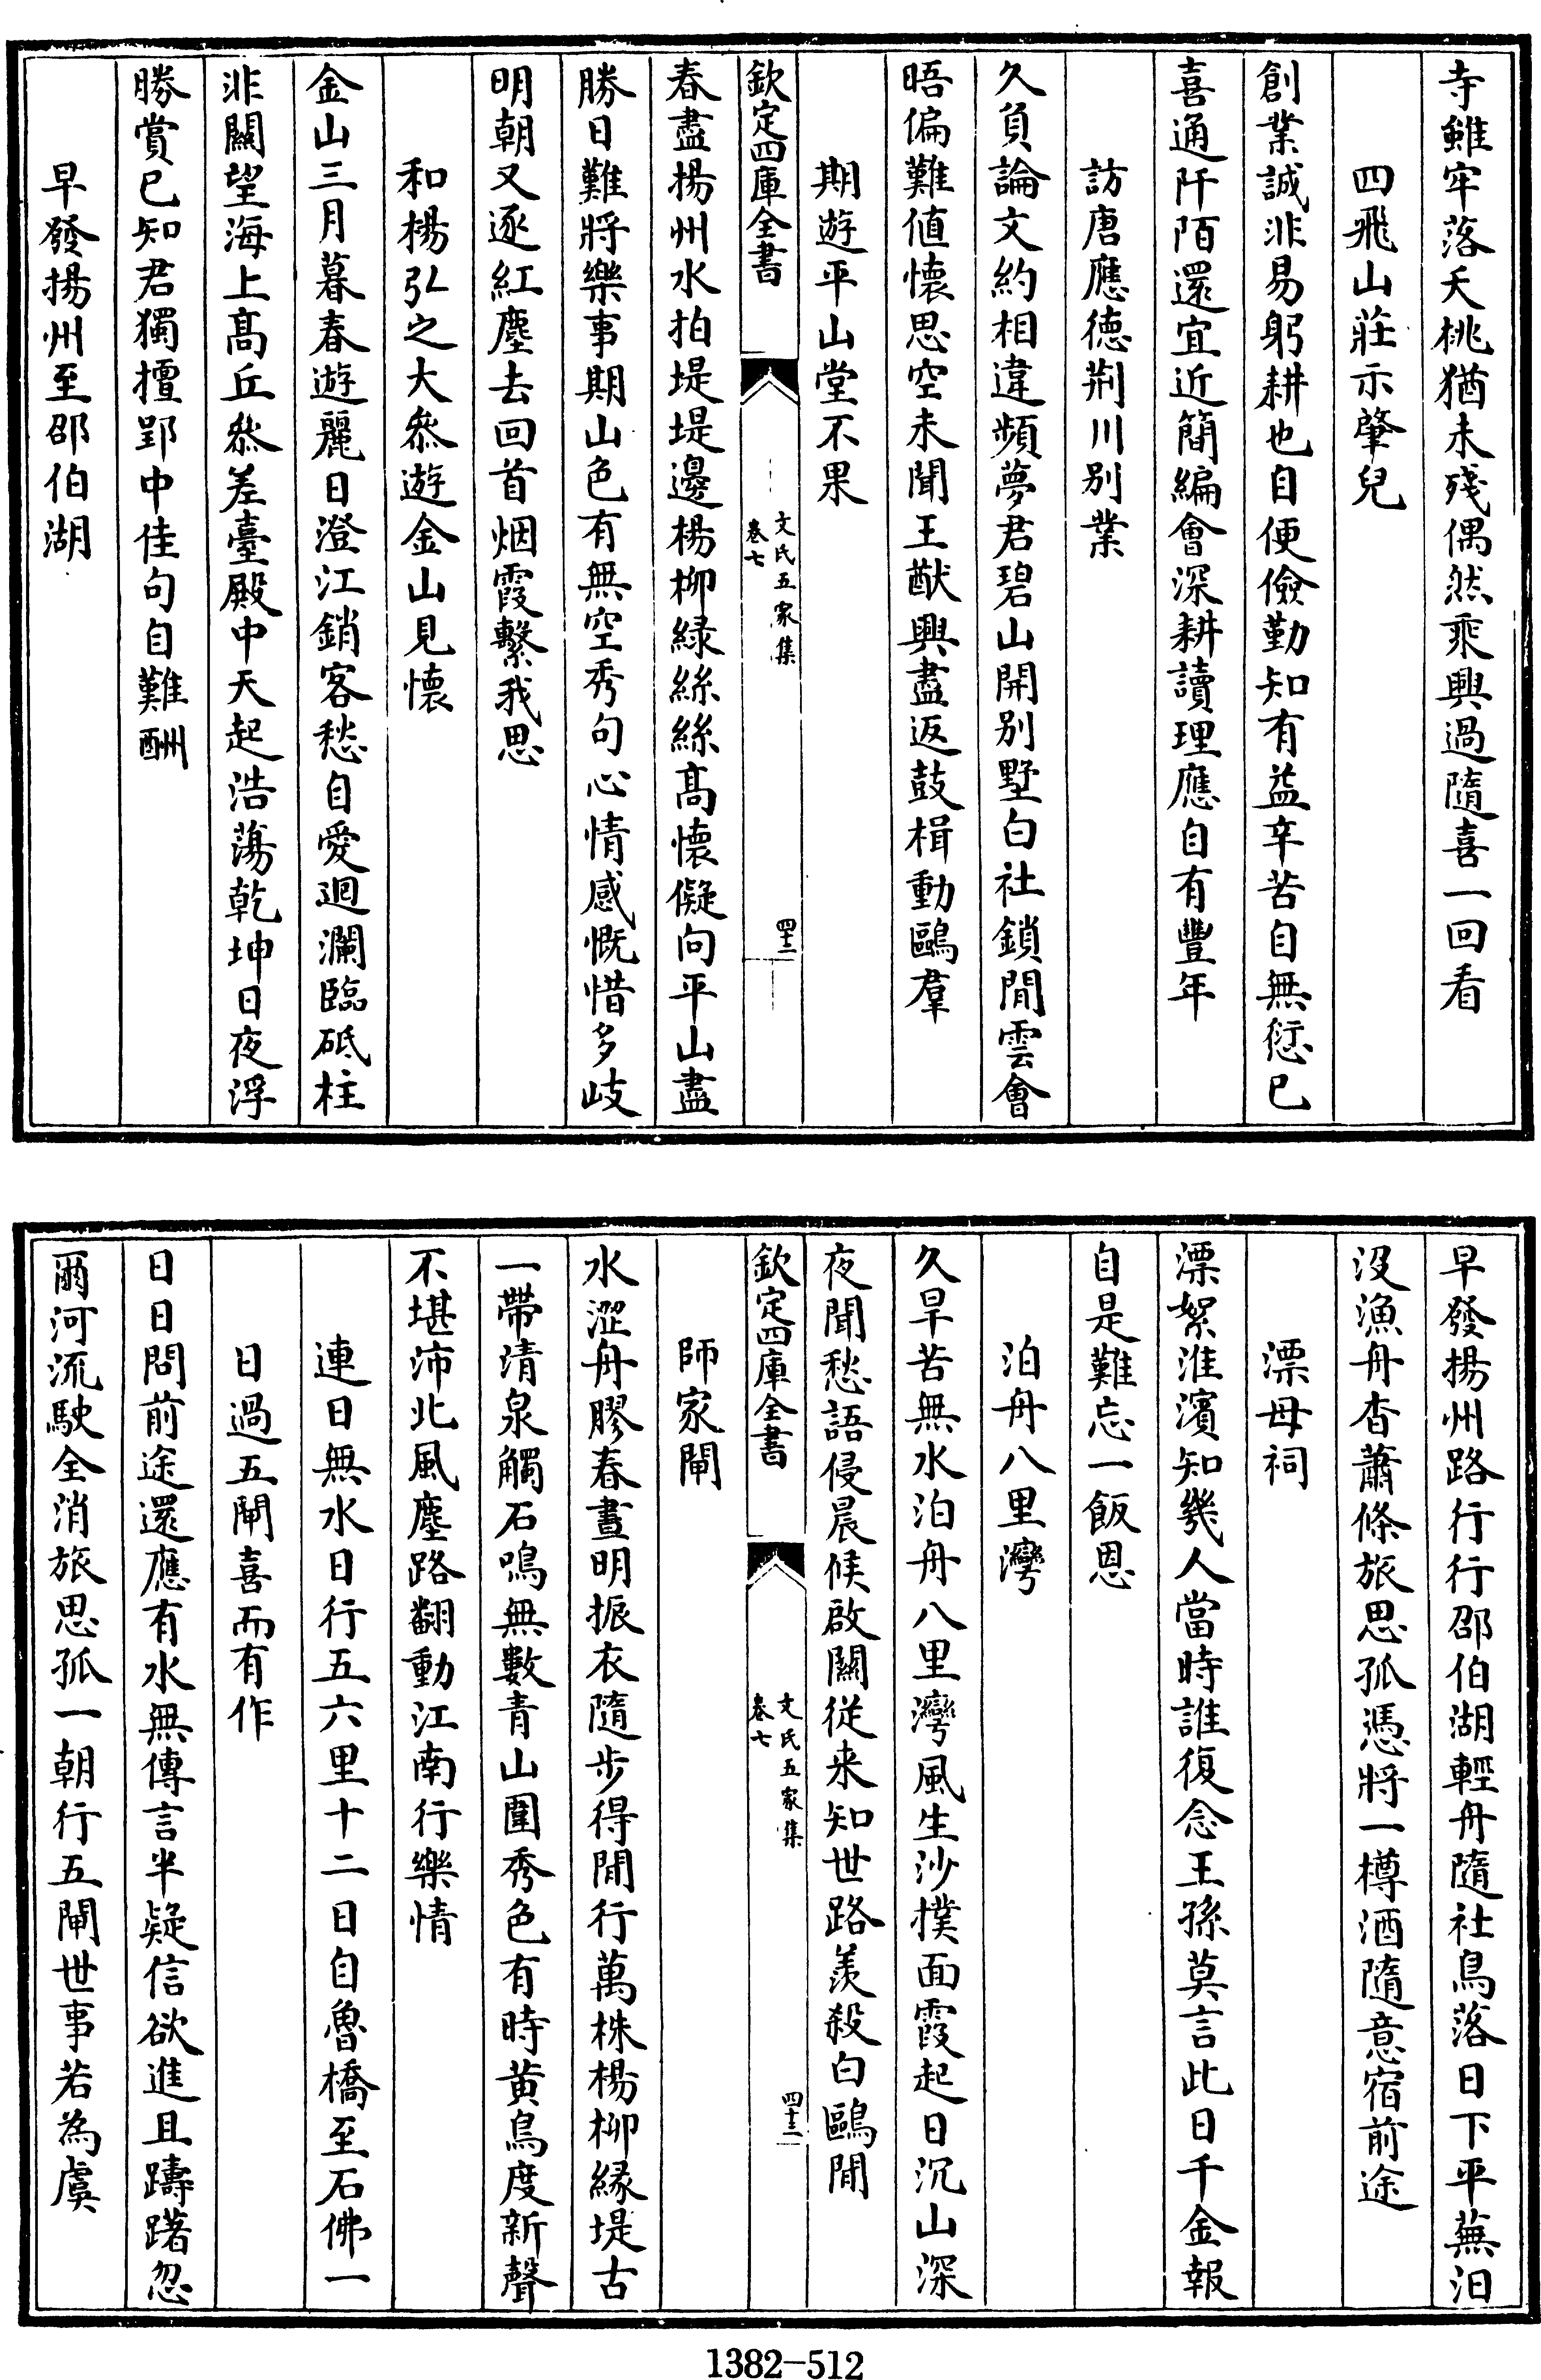 寺雖牢落夭桃猶未殘偶然乘興過隨喜一回看
四飛山莊示肇兒
創業誠非易躬耕也自便儉勤知有益辛苦自無愆已
喜通阡陌還宜近簡編會深耕讀理應自有豐年
訪唐應德荆川别業
久負論文約相違頻夢君碧山開别墅白社鎖閒雲會
晤偏難值懷思空未聞王猷興盡返鼓楫動鷗羣
期遊平山堂不果
欽定四庫全書
文氏五家集
卷七
四十二
春盡揚州水拍堤堤邊楊柳緑絲絲髙懷儗向平山盡
勝日難將樂事期山色有無空秀句心情感慨惜多岐
明朝又逐紅塵去回首烟霞繫我思
和楊弘之大叅遊金山見懷
金山三月暮春遊麗日澄江銷客愁自愛迴瀾臨砥柱
非關望海上髙丘叅差臺殿中天起浩蕩乾坤日夜浮
勝賞已知君獨擅郢中佳句自難酬
早發揚州至邵伯湖
早發揚州路行行邵伯湖輕舟隨社鳥落日下平蕪汩
没漁舟杳蕭條旅思孤憑將一樽酒隨意宿前途
漂母祠
漂絮淮濱知幾人當時誰復念王孫莫言此日千金報
自是難忘一飯恩
泊舟八里灣
久旱苦無水泊舟八里灣風生沙撲面霞起日沉山深
夜聞愁語侵晨候啟關從来知世路羨殺白鷗閒
欽定四庫全書
文氏五家集
卷七
四十三
師家閘
水澀舟膠春晝明振衣隨步得閒行萬株楊柳縁堤古
一帶清泉觸石鳴無數青山圍秀色有時黄鳥度新聲
不堪沛北風塵路翻動江南行樂情
連日無水日行五六里十二日自魯橋至石佛一
日過五閘喜而有作
日日問前途還應有水無傳言半疑信欲進且躊躇忽
爾河流駛全消旅思孤一朝行五閘世事若為虞
1382-512